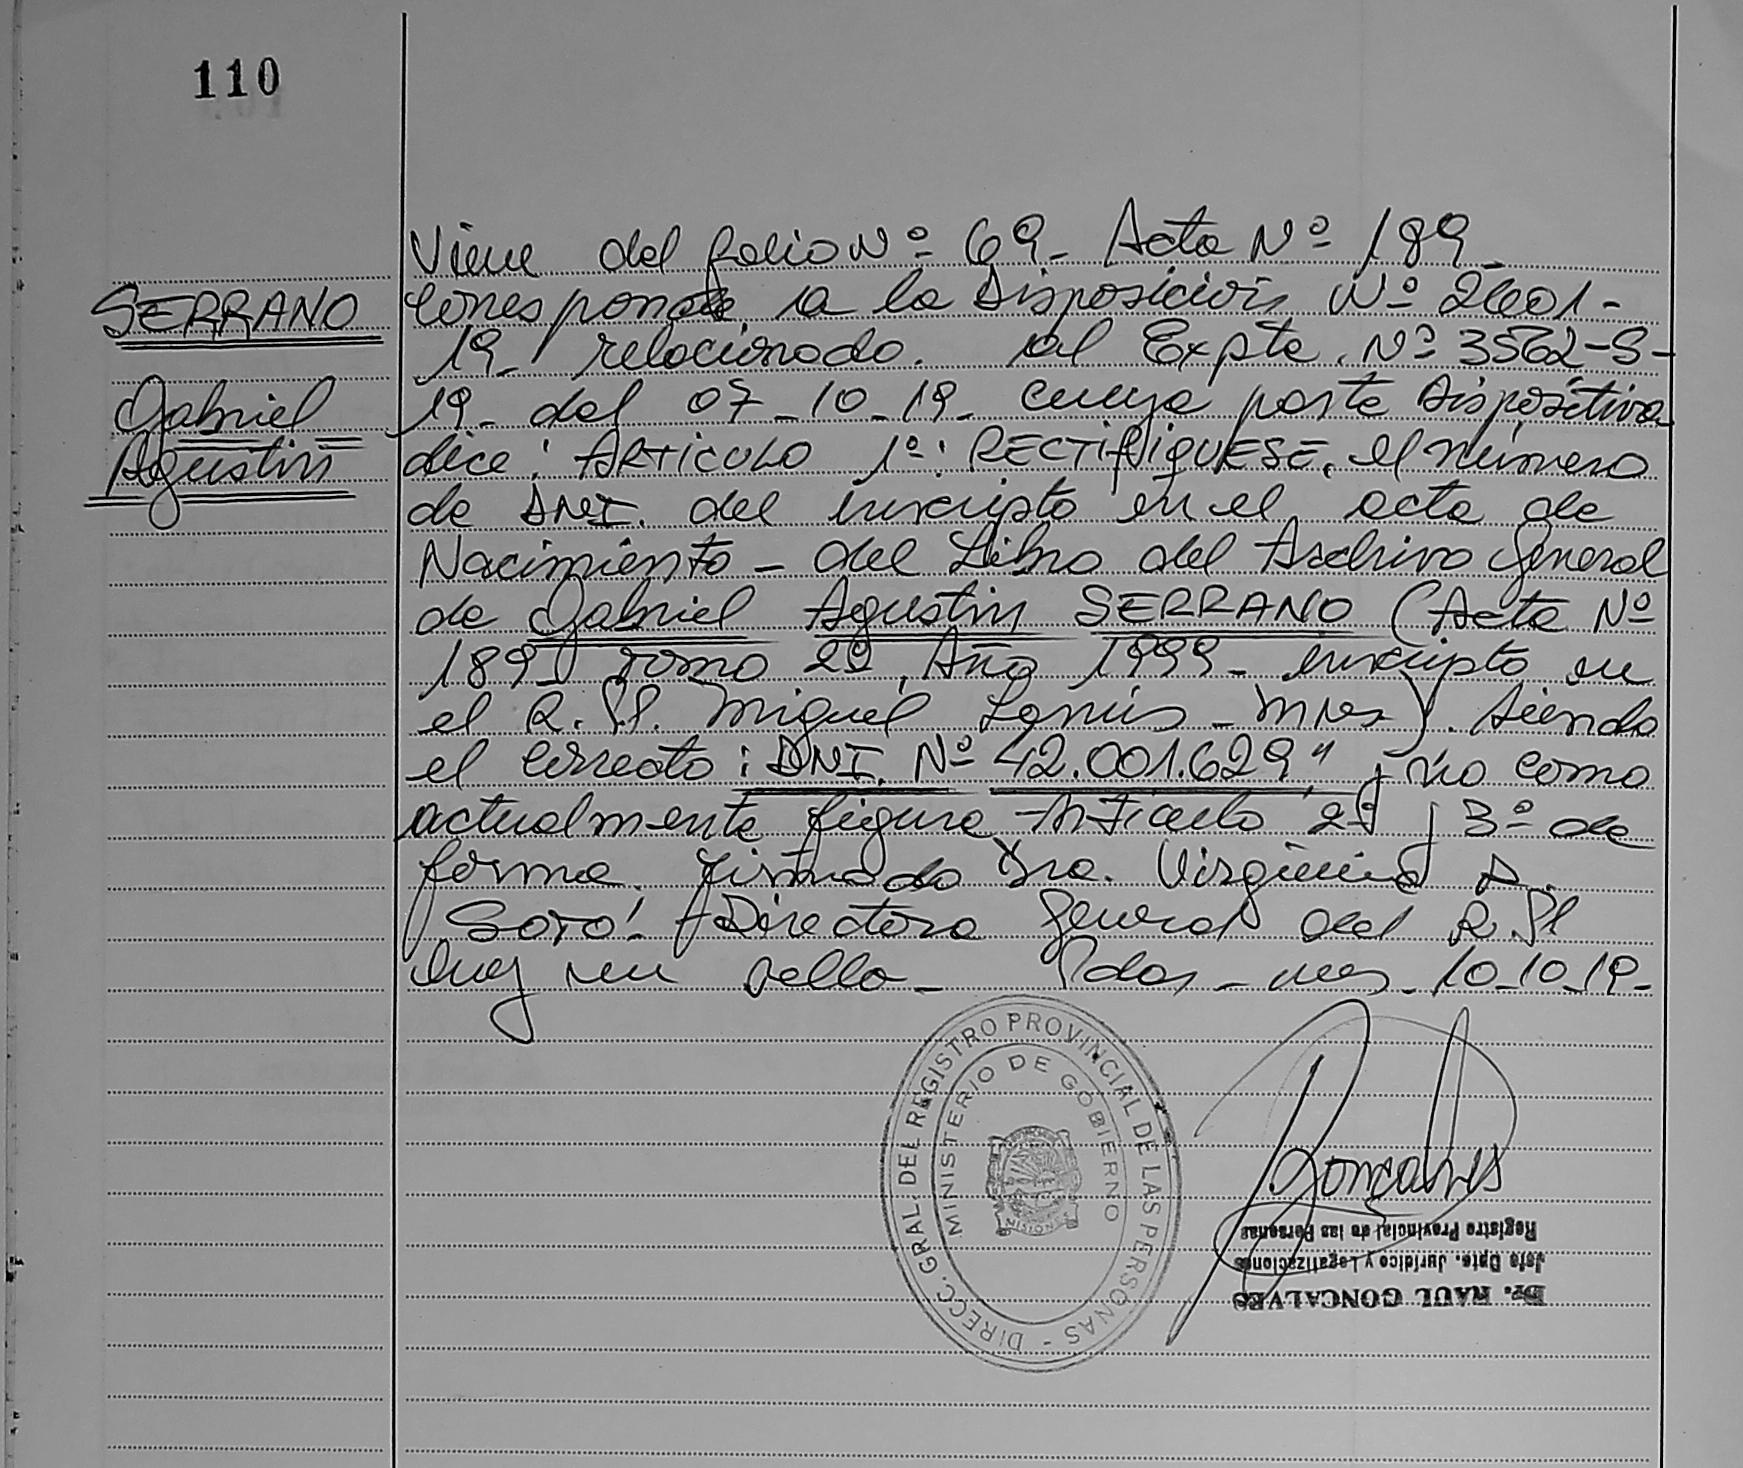 110
Viene del folio Nº 69- Acta Nº 189-
SERRANO
Corresponde a la Disposición Nº 2601-
19- relacionado. al Expte. Nº 3562-S-
Gabriel
19- del 07-10-19- cuya parte Dispositiva
Agustin
dice: ARTICULO 1º: RECTIFIQUESE, el número
de DNI. del inscripto en el acta de
Nacimiento - del Libro del Archivo General
de Gabriel Agustin SERRANO (Acta Nº
189 Tomo 2º, Año 1999- inscripto en
el R.P. Miguel Lanús - Mnes). Siendo
el correcto: DNI. Nº 42.001.629" y no como
actualmente figura. Artículo 2º y 3º de
forma. Firmado Dra. Virginia A.
Soto! Directora General del R.P.
Hay un sello- Pdas - mes. 10-10-19-
DIRECC. GRAL. DEL REGISTRO PROVINCIAL DE LAS PERSONAS -
MINISTERIO DE GOBIERNO
MISIONES
Goncalves
Dr. RAUL GONCALVES
Jefe Dpto. Jurídico y Legalizaciones
Registro Provincial de las Personas